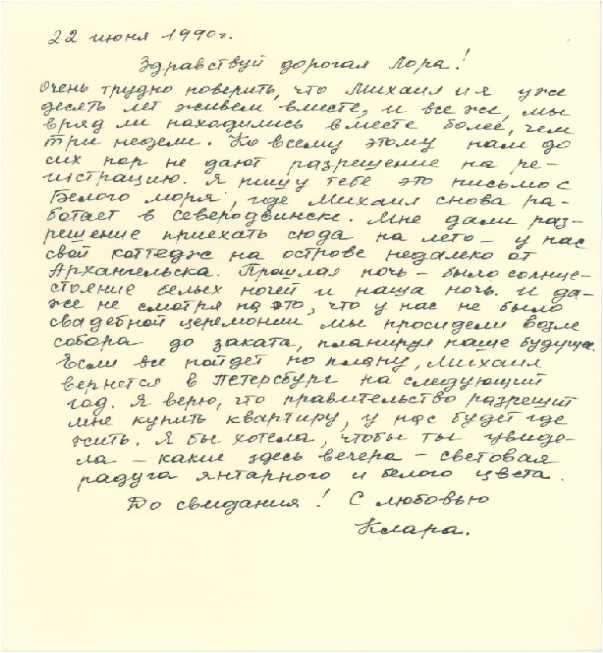 22 июня 1990г.
Здравствуй дорогая Лора!
Очень трудно поверить, что Михаил и я уже
десять лет живем вместе, и все же, мы
вряд ли находились вместе более, чем
три недели. Ко всему этому нам до
сих пор не дают разрешение на ре-
гистрацию. Я пишу тебе это письмо с
Белого моря, где Михаил снова ра-
ботает в Северодвинске. Мне дали раз-
решение приехать сюда на лето – у нас
свой коттедж на острове недалеко от
Архангельска. Прошлая ночь – было солнце-
стояние белых ночей и наша ночь. И да-
же не смотря на это, что у нас не было
свадебной церемонии мы просидели возле
собора до заката, планируя наше будущее.
Если все пойдет по плану, Михаил
вернется в Петерсбург на следующий
год. Я верю, что правительство разрешит
мне купить квартиру, у нас будет где
жить. Я бы хотела, чтобы ты увиде-
ла – какие здесь вечера – световая
радуга янтарного и белого цвета.
До свидания! С любовью
Клара.